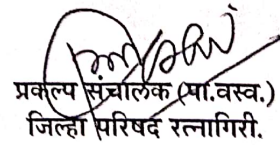 प्रकल्प संचालक (पा.वस्व.)
जिल्हा परिषद रत्नागिरी.